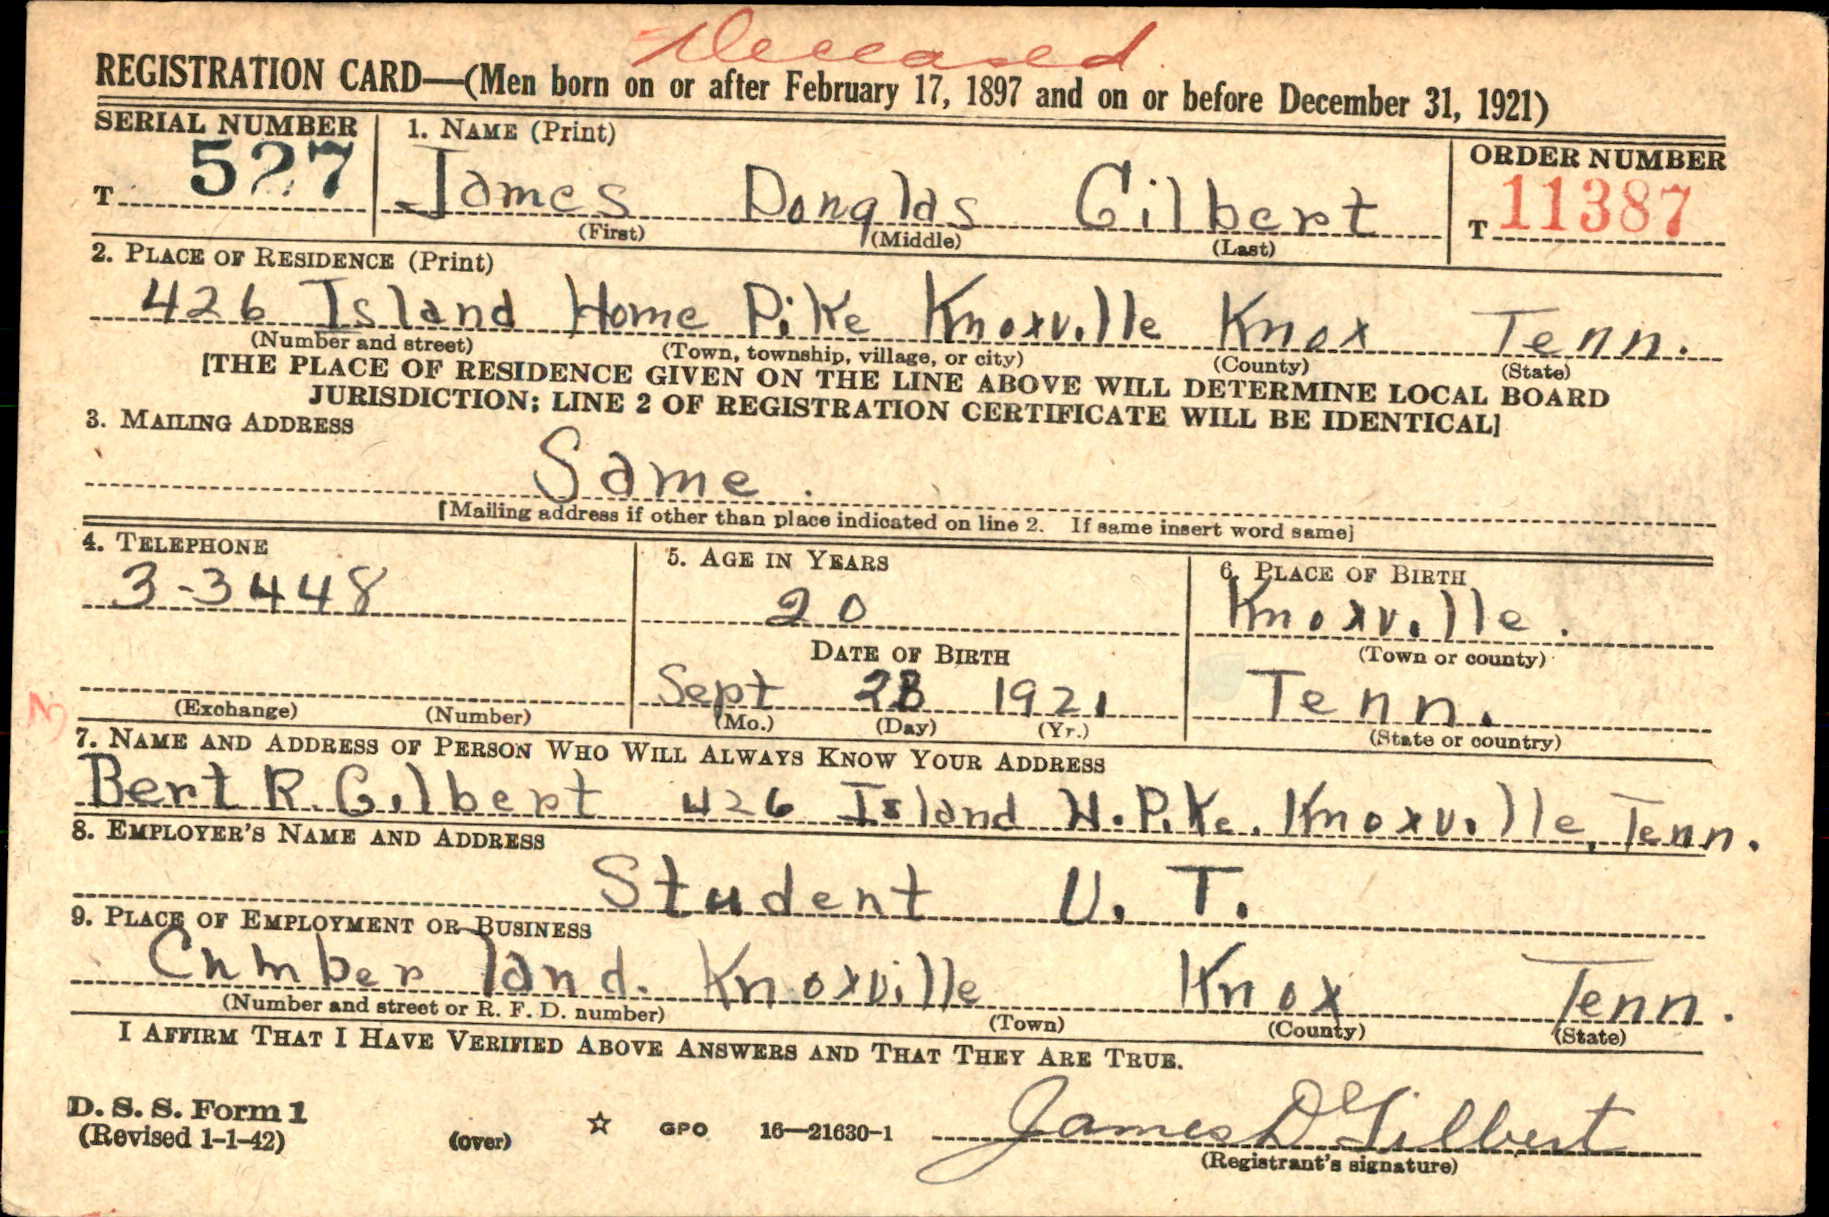 Deceased
REGISTRATION CARD—(Men born on or after February 17, 1897 and on or before December 31, 1921)
SERIAL NUMBER
T 527
1. NAME (Print)
James Douglas Gilbert
(First) (Middle) (Last)
ORDER NUMBER
T 11387
2. PLACE OF RESIDENCE (Print)
426 Island Home Pike Knoxville Knox Tenn.
(Number and street) (Town, township, village, or city) (County) (State)
[THE PLACE OF RESIDENCE GIVEN ON THE LINE ABOVE WILL DETERMINE LOCAL BOARD
JURISDICTION; LINE 2 OF REGISTRATION CERTIFICATE WILL BE IDENTICAL]
3. MAILING ADDRESS
Same.
[Mailing address if other than place indicated on line 2. If same insert word same]
4. TELEPHONE
3-3448
(Exchange) (Number)
5. AGE IN YEARS
20
DATE OF BIRTH
Sept 28 1921
(Mo.) (Day) (Yr.)
6. PLACE OF BIRTH
Knoxville.
(Town or county)
Tenn.
(State or country)
7. NAME AND ADDRESS OF PERSON WHO WILL ALWAYS KNOW YOUR ADDRESS
Bert R. Gilbert 426 Island H. Pike. Knoxville, Tenn.
8. EMPLOYER'S NAME AND ADDRESS
Student U. T.
9. PLACE OF EMPLOYMENT OR BUSINESS
Cumberland. Knoxville Knox Tenn.
(Number and street or R. F. D. number) (Town) (County) (State)
I AFFIRM THAT I HAVE VERIFIED ABOVE ANSWERS AND THAT THEY ARE TRUE.
D. S. S. Form 1
(Revised 1-1-42) (over) ☆ GPO 16—21630-1
James D Gilbert
(Registrant's signature)